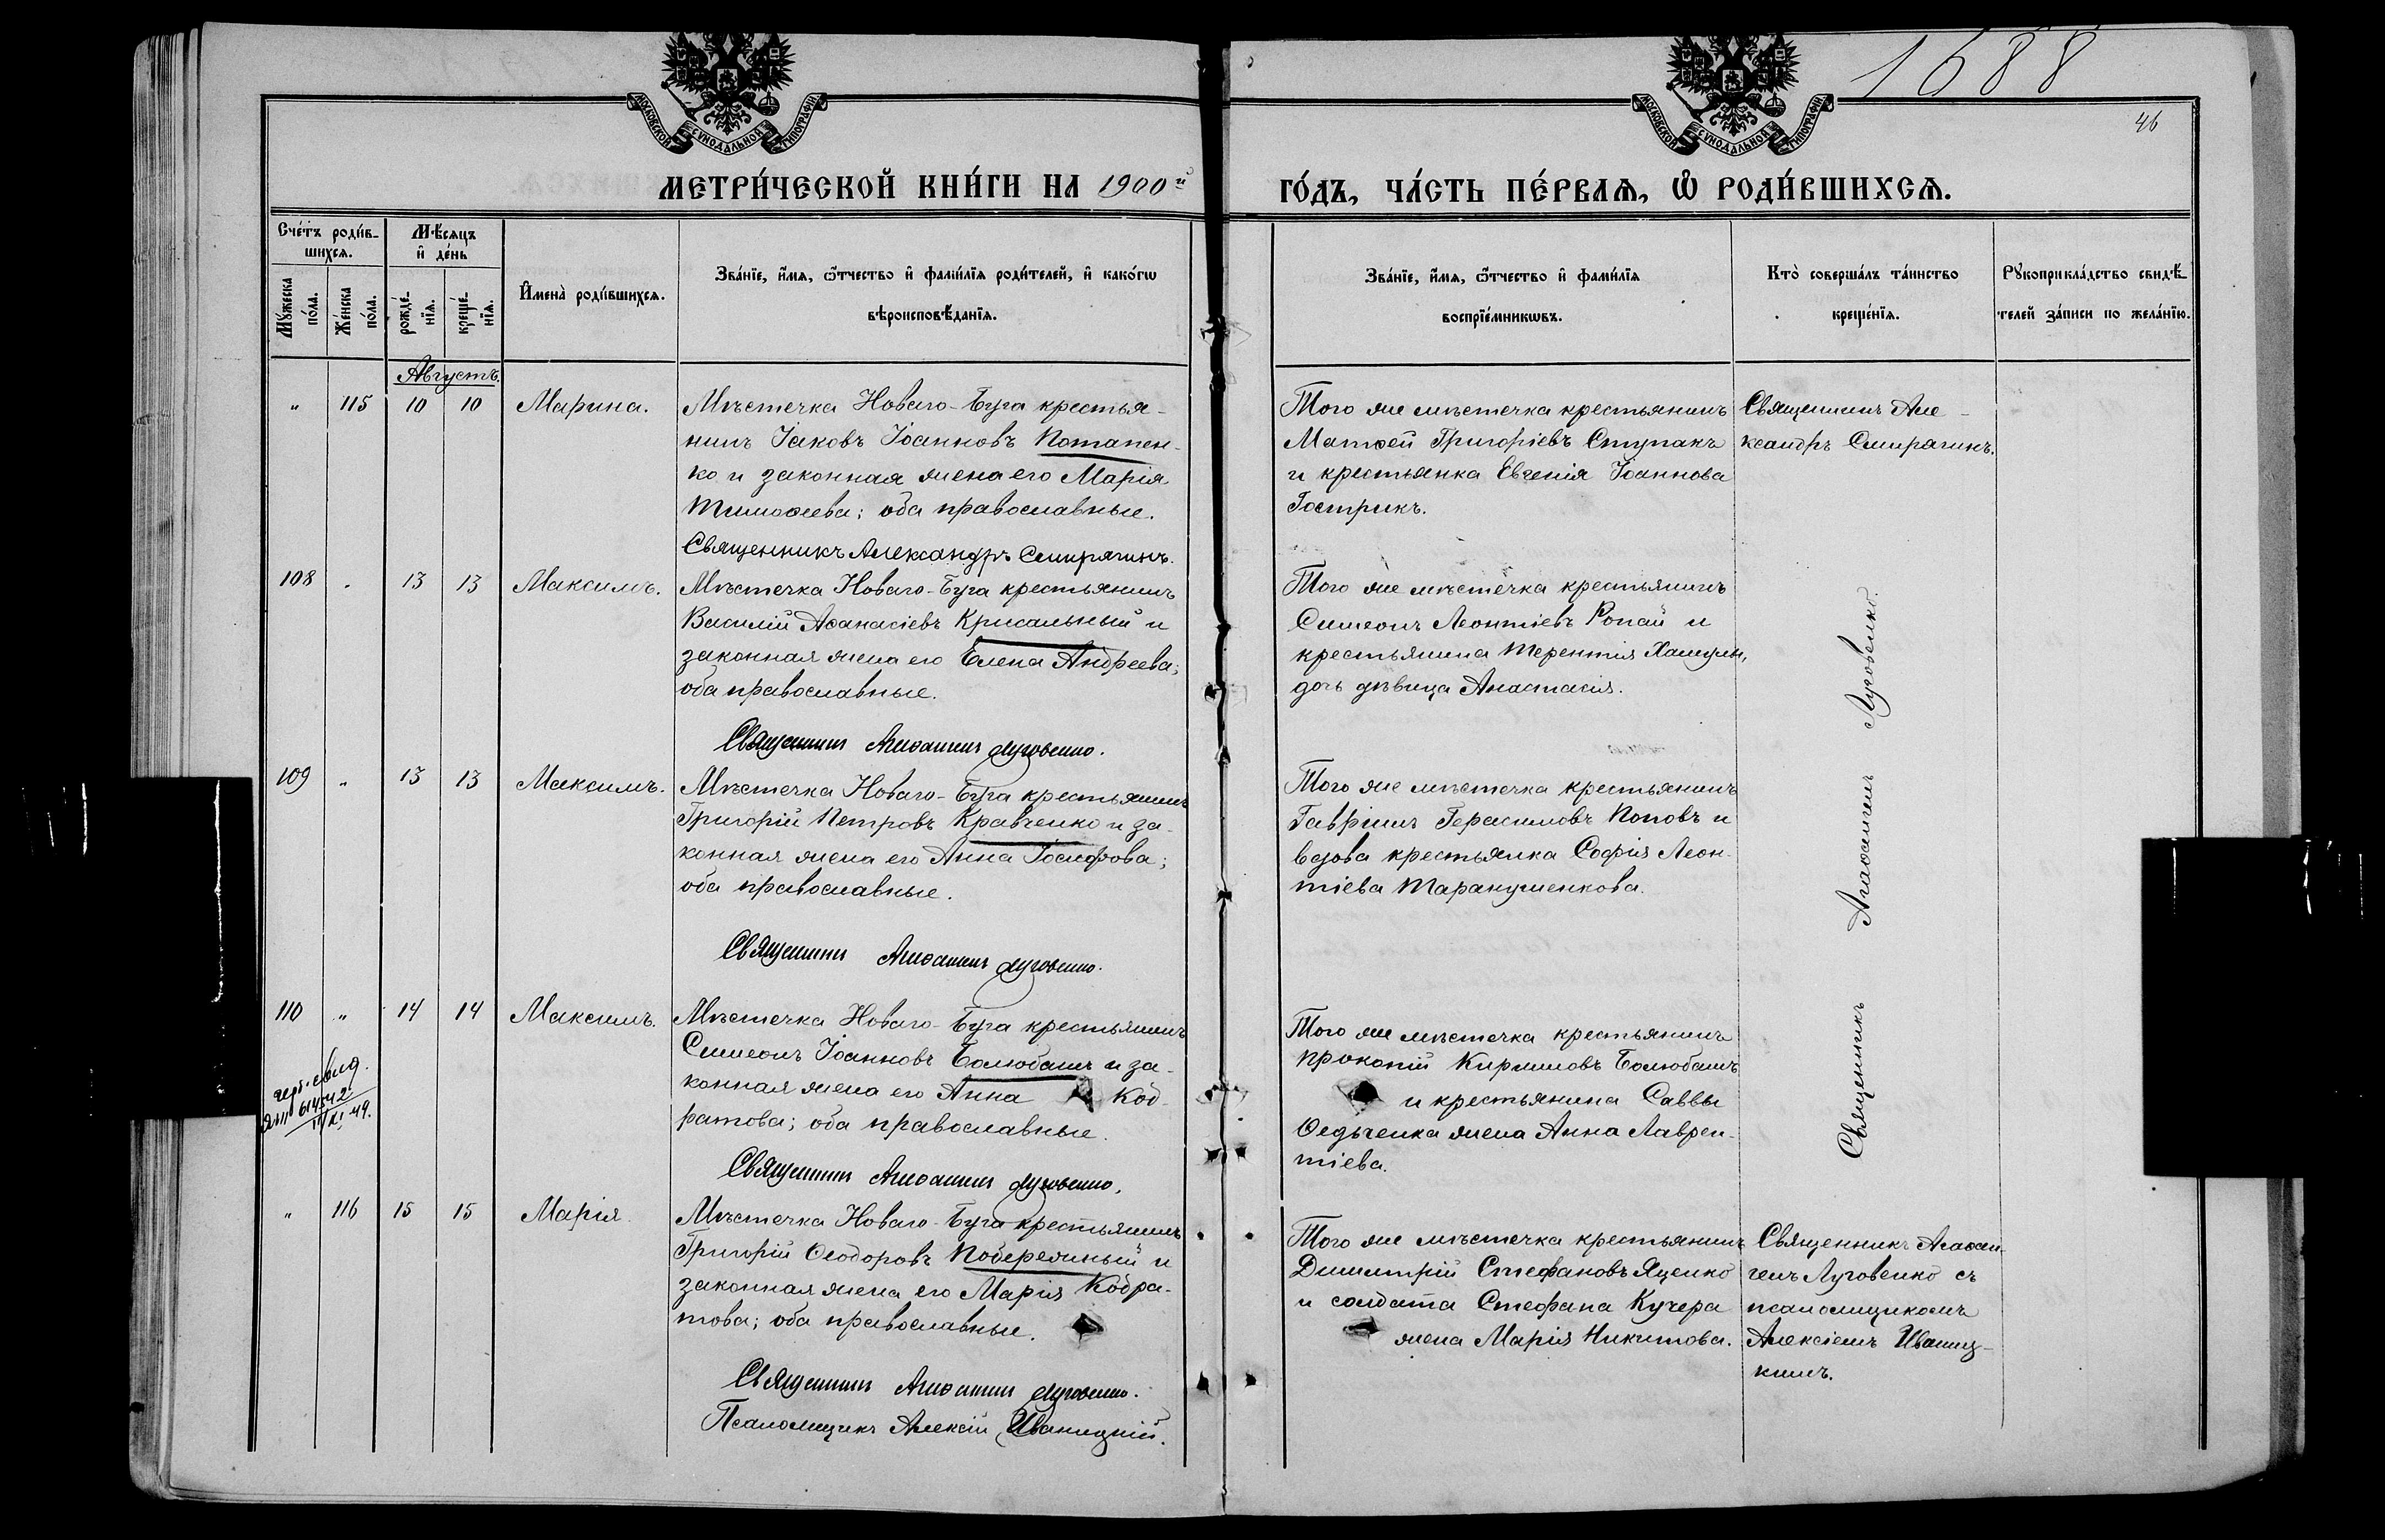 1688
46
МОСКОВСКОЙ СУНОДАЛЬНОЙ ТИПОГРАФІИ
МОСКОВСКОЙ СУНОДАЛЬНОЙ ТИПОГРАФІИ
МЕТРИ́ЧЕСКОЙ КНИ́ГИ НА 1900й
ГО́ДЪ, ЧА́СТЬ ПЕ́РВАѦ, Ѡ РОДИ́ВШИХСѦ.
Сче́тъ роди́в-
шихсѧ.
Мꙋ́жеска по́ла.
Же́нска по́ла.
Мѣ́сѧцъ
и҆ де́нь
рожде́-нїѧ.
креще́-нїѧ.
И҆мена̀ роди́вшихсѧ.
Зва́нїе, и҆́мѧ, ѻ҆́тчество и҆ фами́лїѧ роди́телей, и҆ како́гѡ
вѣроисповѣ́данїѧ.
Зва́нїе, и҆́мѧ, ѻ҆́тчество и҆ фами́лїѧ
воспрїе́мникѡвъ.
Кто̀ соверша́лъ та́инство
креще́нїѧ.
Рꙋкоприкла́дство свидѣ́-
телей за́писи по жела́нїю.
Августъ.
„ 115 10 10 Марина.
Мѣстечка Новаго-Буга крестья-
нинъ Іаковъ Іоанновъ Потапен-
ко и законная жена его Марія
Тимоѳеева; оба православные.
Священникъ Александръ Смирягинъ.
Того же мѣстечка крестьянинъ
Матѳей Григоріевъ Ступакъ
и крестьянка Евгенія Іоаннова
Гострикъ.
Священникъ Але-
ксандръ Смирягинъ.
108 „ 13 13 Максимъ.
Мѣстечка Новаго-Буга крестьянинъ
Василій Аѳанасіевъ Крисальный и
законная жена его Елена Андреева;
оба православные.
Священникъ Агаѳангелъ Луговенко.
Того же мѣстечка крестьянинъ
Симеонъ Леонтіевъ Ропай и
крестьянина Терентія
дочь дѣвица Анастасія.
109 „ 13 13 Максимъ.
Мѣстечка Новаго-Буга крестьянинъ
Григорій Петровъ Кравченко и за-
конная жена его Анна Іосифова;
оба православные.
Священникъ Агаѳангелъ Луговенко.
Того же мѣстечка крестьянинъ
Гавріилъ Герасимовъ Поповъ и
вдова крестьянка Софія Леон-
тіева Таранушенкова.
110 „ 14 14 Максимъ.
свид.
614542
11/XI 49.
Мѣстечка Новаго-Буга крестьянинъ
Симеонъ Іоанновъ Болюбашъ и за-
конная жена его Анна Код-
ратова; оба православные.
Священникъ Агаѳангелъ Луговенко.
Того же мѣстечка крестьянинъ
Прокопій Кирилловъ Болюбашъ
и крестьянина Саввы
Ѳедченка жена Анна Лаврен-
тіева.
Священникъ Агаѳангелъ Луговенко.
„ 116 15 15 Марія.
Мѣстечка Новаго-Буга крестьянинъ
Григорій Ѳеодоровъ Побережный и
законная жена его Марія Кодра-
това; оба православные.
Священникъ Агаѳангелъ Луговенко.
Псаломщикъ Алексій Иваницкій.
Того же мѣстечка крестьянинъ
Димитрій Стефановъ Яценко
и солдата Стефана Кучера
жена Марія Никитова.
Священникъ Агаѳан-
гелъ Луговенко съ
псаломщикомъ
Алексіемъ Иваниц-
кимъ.